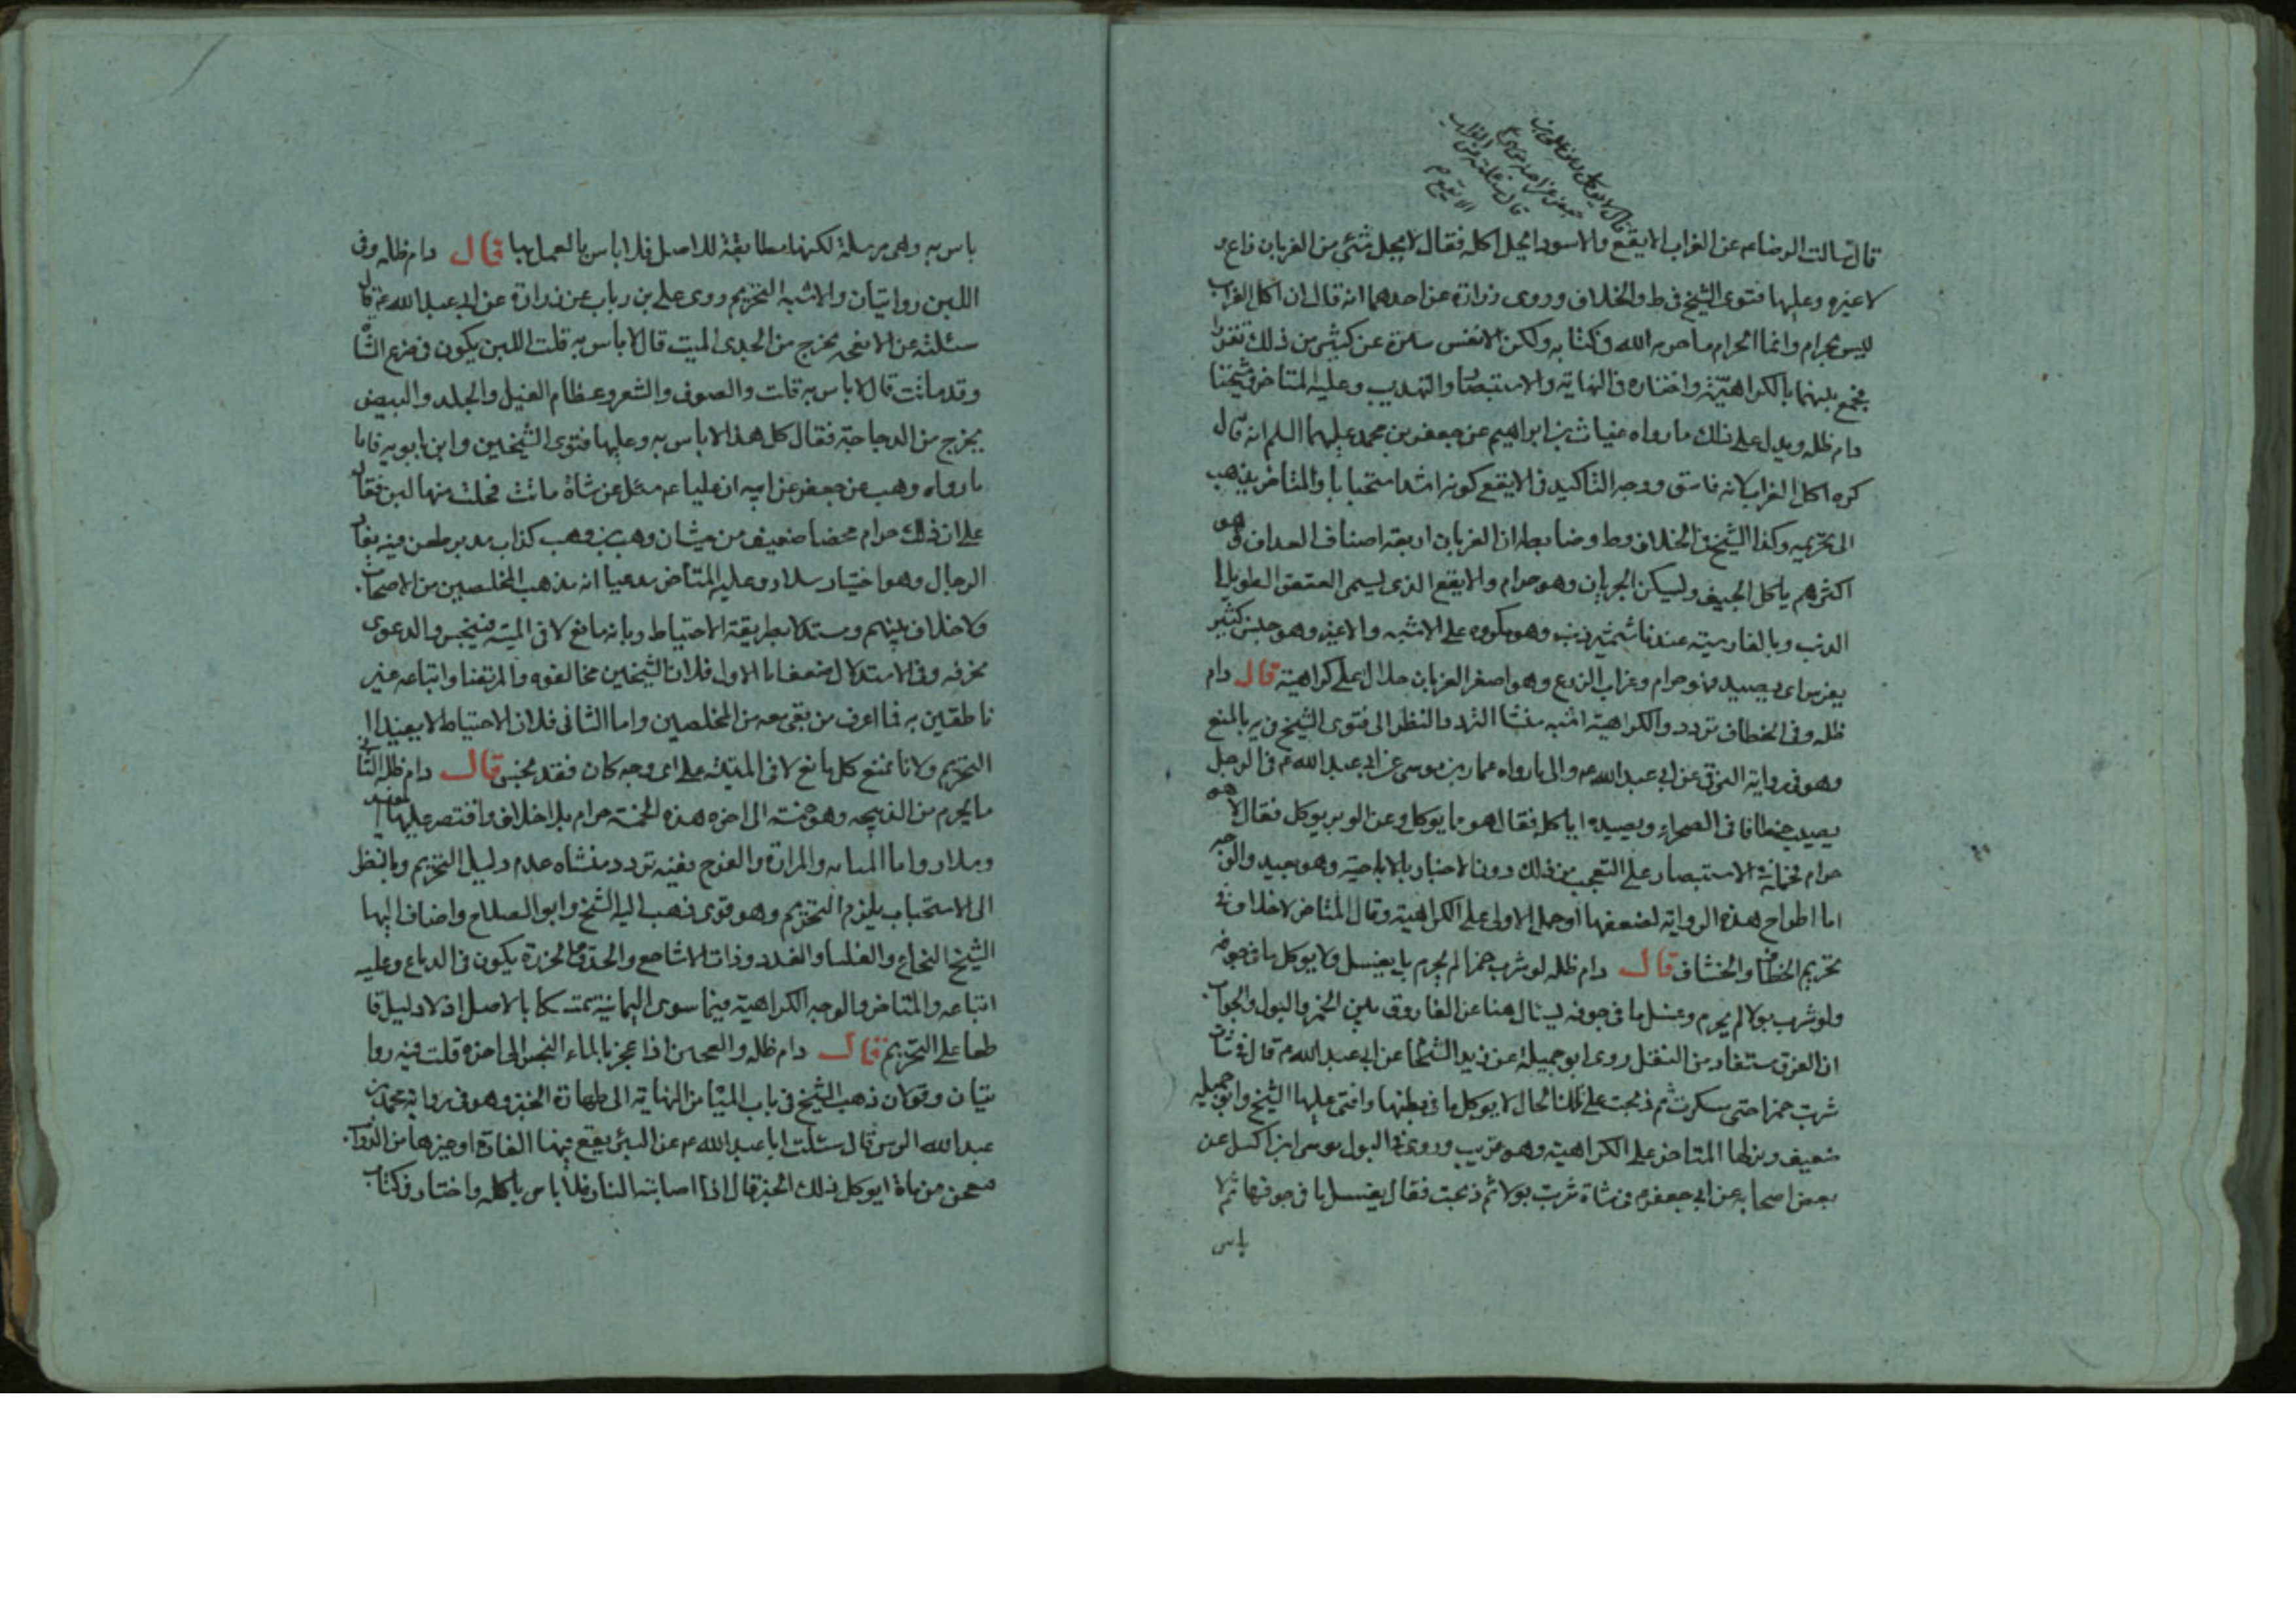 قال سالت الرضا ع عن الغراب الابقع والاسود ايحل اكله فقال لا يحل شئ من الغربان زاغ و
لا غيره وعليها فتوى الشيخ فى ط والخلاف وروى زرارة عن احدهما انه قال ان اكل الغراب
ليس بحرام وانما الحرام ما حرمه الله فى كتابه ولكن الانفس تتنزه عن كثير من ذلك تقززا
فجمع بينهما بالكراهيّة واختاره فى النهاية والاستبصار والتهذيب وعليه المتاخر وشيخنا
دام ظله ويدل على ذلك ما رواه غياث بن ابراهيم عن جعفر بن محمد عليهما السلم انه قال
كره اكل الغراب لانه فاسق ووجه التاكيد فى الابقع كونه اشد استخبابا والمتاخر يذهب
الى تحريمه وكذا الشيخ فى الخلاف وط وضابطه ان الغربان اربعة اصناف الغداف هو
اكثرهم ياكل الجيف وليسكن الجربان وهو حرام والابقع الذى يسمى العقعق الطويل ا
الذنب وبالفارسية عندنا شمشير ذنب وهو مكروه على الاشبه والاغبر وهو جليس كثير
يفرس اى يصيد فهو حرام وغراب الزرع وهو اصغر الغربان حلال على كراهية قال دام
ظله وفى الخطاف تردد والكراهية اشبه منشا التردد النظر الى فتوى الشيخ فى يه بالمنع
وهو فى رواية البرقى عن ابى عبد الله ع والى ما رواه عمار بن موسى عن ابى عبد الله ع فى الرجل
يصيب خطافا فى الصحراء ويصيده اياكله فقال هو مما يوكل وعن الوبر يوكل فقال لا هو
حرام فحمله فى الاستبصار على التعجب من ذلك دون الاخبار بالاباحة وهو جيد والوجه
اما اطراح هذه الرواية لضعفها او حمل الاولى على الكراهية وقال المتاخر لا خلاف فى
تحريم الخطاف والخشاف قال دام ظله لو شرب خمرا لم يحرم بل يغسل ولا يوكل ما فى جوفه
ولو شرب بولا لم يحرم وغسل ما فى جوفه ليسال هنا عن الفاروق بين الخمر والبول والجواب
ان الفرق مستفاد من النقل روى ابو جميلة عن زيد الشحام عن ابى عبد الله ع قال فى شاة
شربت خمرا حتى سكرت ثم ذبحت على تلك الحال لا يوكل ما فى بطنها وافتى عليها الشيخ وابو جميله
ضعيف ونزلها المتاخر على الكراهية وهو قريب وروى فى البول موسى بن اكيل عن
بعض اصحابه عن ابى جعفر ع فى شاة شربت بولا ثم ذبحت فقال يغسل ما فى جوفها ثم لا
باس
باس به وهى مرسلة لكنها مطابقة للاصل فلا باس بالعمل بها قال دام ظله وفى
اللبن روايتان والاشبه التحريم روى على بن رباب عن زرارة عن ابى عبد الله ع قال
سئلته عن الانفحه تخرج من الجدى الميت قال لا باس به قلت اللبن يكون فى ضرع الشاة
وقد ماتت قال لا باس به قلت والصوف والشعر وعظام الفيل والجلد والبيض
يخرج من الدجاجة فقال كل هذا لا باس به وعليها فتوى الشيخين وابن بابويه فاما
ما رواه وهب عن جعفر عن ابيه ان عليا ع سئل عن شاة ماتت فحلب منها لبن فقال
على ان ذلك حرام محضا ضعيف من حيث ان وهب بن وهب كذاب مدبر طعن فيه نقاد
الرجال وهو اختيار سلار وعليه المتاخر مدعيا انه مذهب المخلصين من الاصحاب
ولا خلاف بينهم ومستدلا بطريقة الاحتياط وبانه مائع لاقى الميتة فينجس والدعوى
محرفه وفى الاستدلال ضعف اما الاول فلان الشيخين مخالفوه والمرتضى واتباعه غير
ناطقين به فما اعرف من بقى معه من المخلصين واما الثانى فلان الاحتياط لا يفيد ا
التحريم ولانا نمنع كل مائع لاقى الميتة على اى وجه كان فقد نجس قال دام ظله الثانى
ما يحرم من الذبيحه وهو خمسة الى اخره هذه الخمسة حرام بلا خلاف واقتصر عليها المفيد
وسلار واما المثانه والمرارة والفرج ففيه تردد منشاه عدم دليل التحريم وبالنظر
الى الاستخباب يلزم التحريم وهو قوى ذهب اليه الشيخ وابو الصلاح واضاف اليها
الشيخ النخاع والعلباء والغدد وذات الاشاجع والحدق والخرزة يكون فى الدماغ وعليه
اتباعه والمتاخر والوجه الكراهية فيما سوى الثمانية تمسكا بالاصل اذ لا دليل قا
طعا على التحريم قال دام ظله والعجين اذا عجن بالماء النجس الى اخره قلت فيه روا
يتان وقولان ذهب الشيخ فى باب المياه من النهاية الى طهارة الخبز وهو فى رواية محمد بن
عبد الله الزبير قال سئلت ابا عبد الله ع عن البئر يقع فيها الفارة او غيرها من الدواب
فعجن من ماة ايوكل ذلك الخبز قال اذا اصابته النار فلا باس باكله واختار فى كتاب